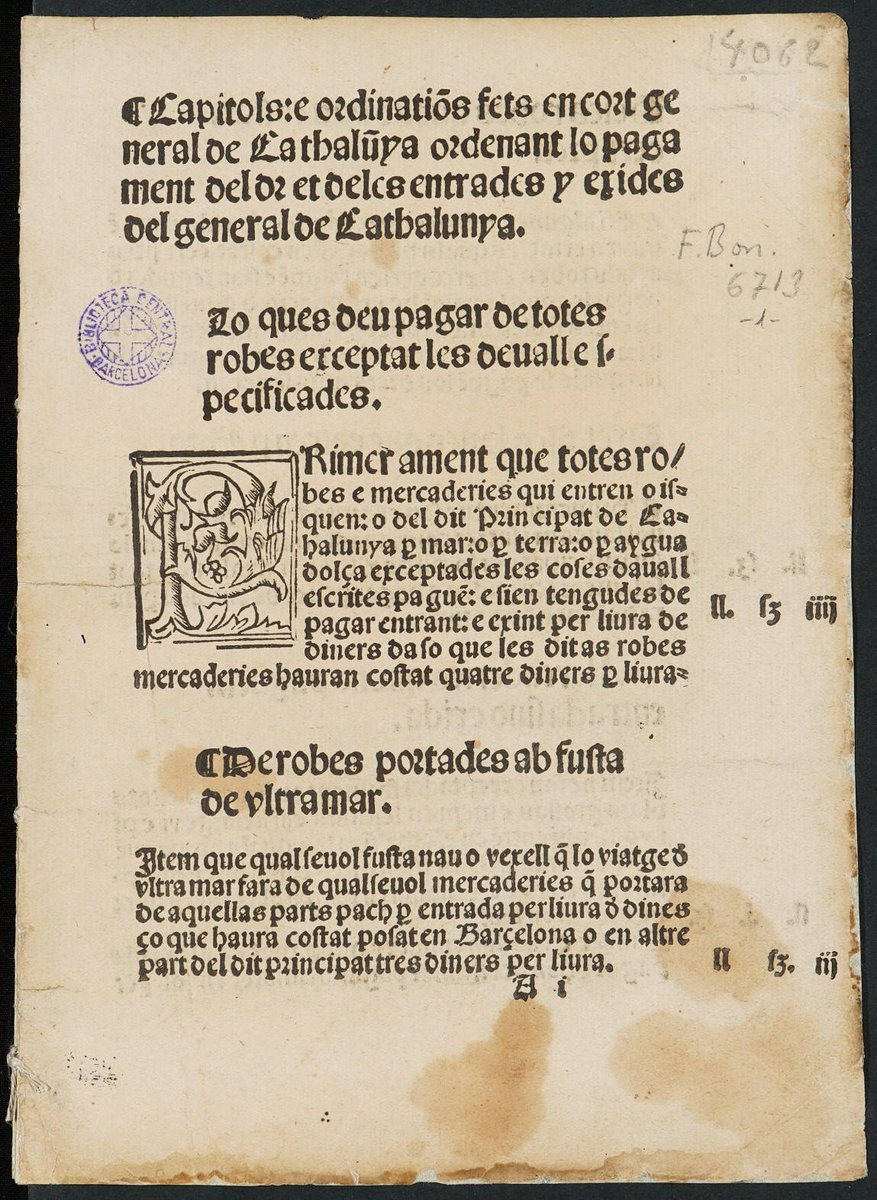 14062
¶Capitols:e ordinatiõs fets en cort ge
neral de Cathalũya ordenant lo paga
ment del dret deles entrades y exides
del general de Cathalunya.
F. Bon.
6713
-1-
BIBLIOTECA CENTRAL
BARCELONA
Lo ques deu pagar de totes
robes exceptat les deuall e s-
pecificades.
PRimer ament que totes ro/
bes e mercaderies qui entren o is=
quen: o del dit Prin cipat de Ca=
halunya ꝑ mar:o ꝑ terra:o ꝑ aygua
dolça exceptades les coses dauall
escrites pa guẽ: e sien tengudes de
pagar entrant: e exint per liura de
diners daso que les ditas robes
mercaderies hauran costat quatre diners ꝑ liura=
ll. ſʒ iiij
¶De robes portades ab fusta
de vltra mar.
Item que qual seuol fusta nau o vexell q̃ lo viatge d̃
vltra mar fara de qualseuol mercaderies q̃ portara
de aquellas parts pach ꝑ entrada per liura d̃ dines
ço que haura costat posat en Barçelona o en altre
part del dit principat tres diners per liura.
ll ſʒ. iij
A i